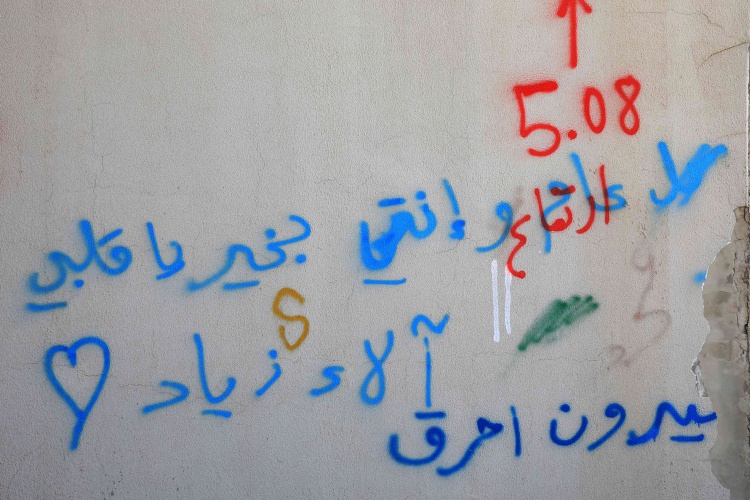 5.08
ارتفاع
كل عام وإنتي بخير يا قلبي
آلاء زياد
احرق